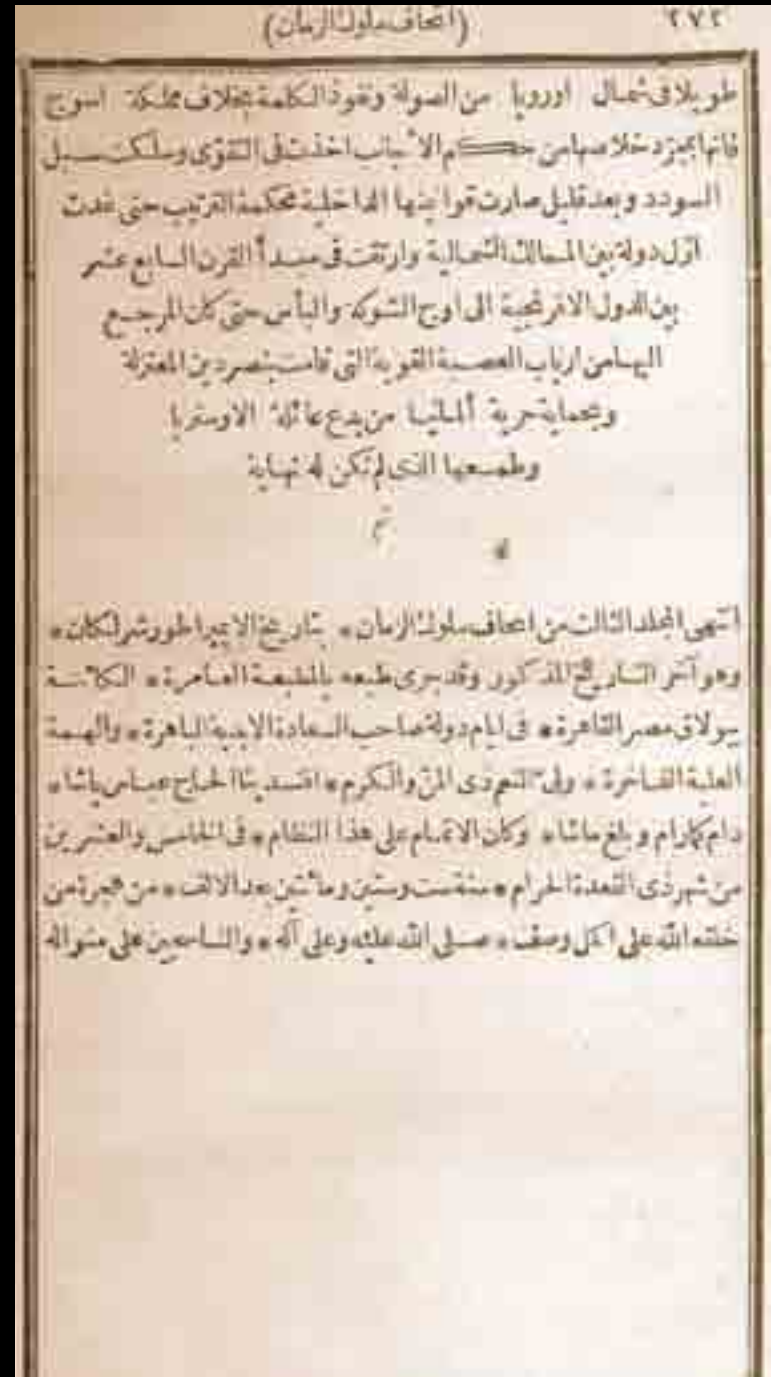 ٢٧٢ (اتحاف ملوك الزمان)
طويلا فى شمال اوروپا من الصولة ونفوذ الكلمة بخلاف مملكة اسوج
فانها بمجرد خلاصها من حكام الأجانب اخذت فى التقوّى وسلكت سبل
السودد وبعد قليل صارت قوانينها الداخلية محكمة الترتيب حتى غدت
اوّل دولة بين الممالك الشمالية وارتقت فى مبدأ القرن السابع عشر
بين الدول الافرنجية الى اوج الشوكة والبأس حتى كان المرجع
اليها من ارباب العصبة القوية التى قامت بنصر دين المعتزلة
وبحماية حرية ألمانيا من بدع عائلة الاوستريا
وطمعها الذى لم تكن له نهاية
تم
انتهى المجلد الثالث من اتحاف ملوك الزمان * بتاريخ الايمپراطور شرلكان *
وهو آخر التاريخ المذكور وقد جرى طبعه بالمطبعة العامرة * الكائنة
ببولاق مصر القاهرة * فى ايام دولة صاحب السعادة الابدية الباهرة * والهمة
العلية الفاخرة * ولىّ النعم ذى المنّ والكرم * افندينا الحاج عباس باشا *
دام كما رام وبلغ ماشا * وكان الاتمام على هذا النظام * فى الخامس والعشرين
من شهر ذى القعدة الحرام * سنة ست وستين ومائتين بعد الالف * من هجرة من
خلقه الله على اكمل وصف * صلى الله عليه وعلى آله * والناسجين على منواله